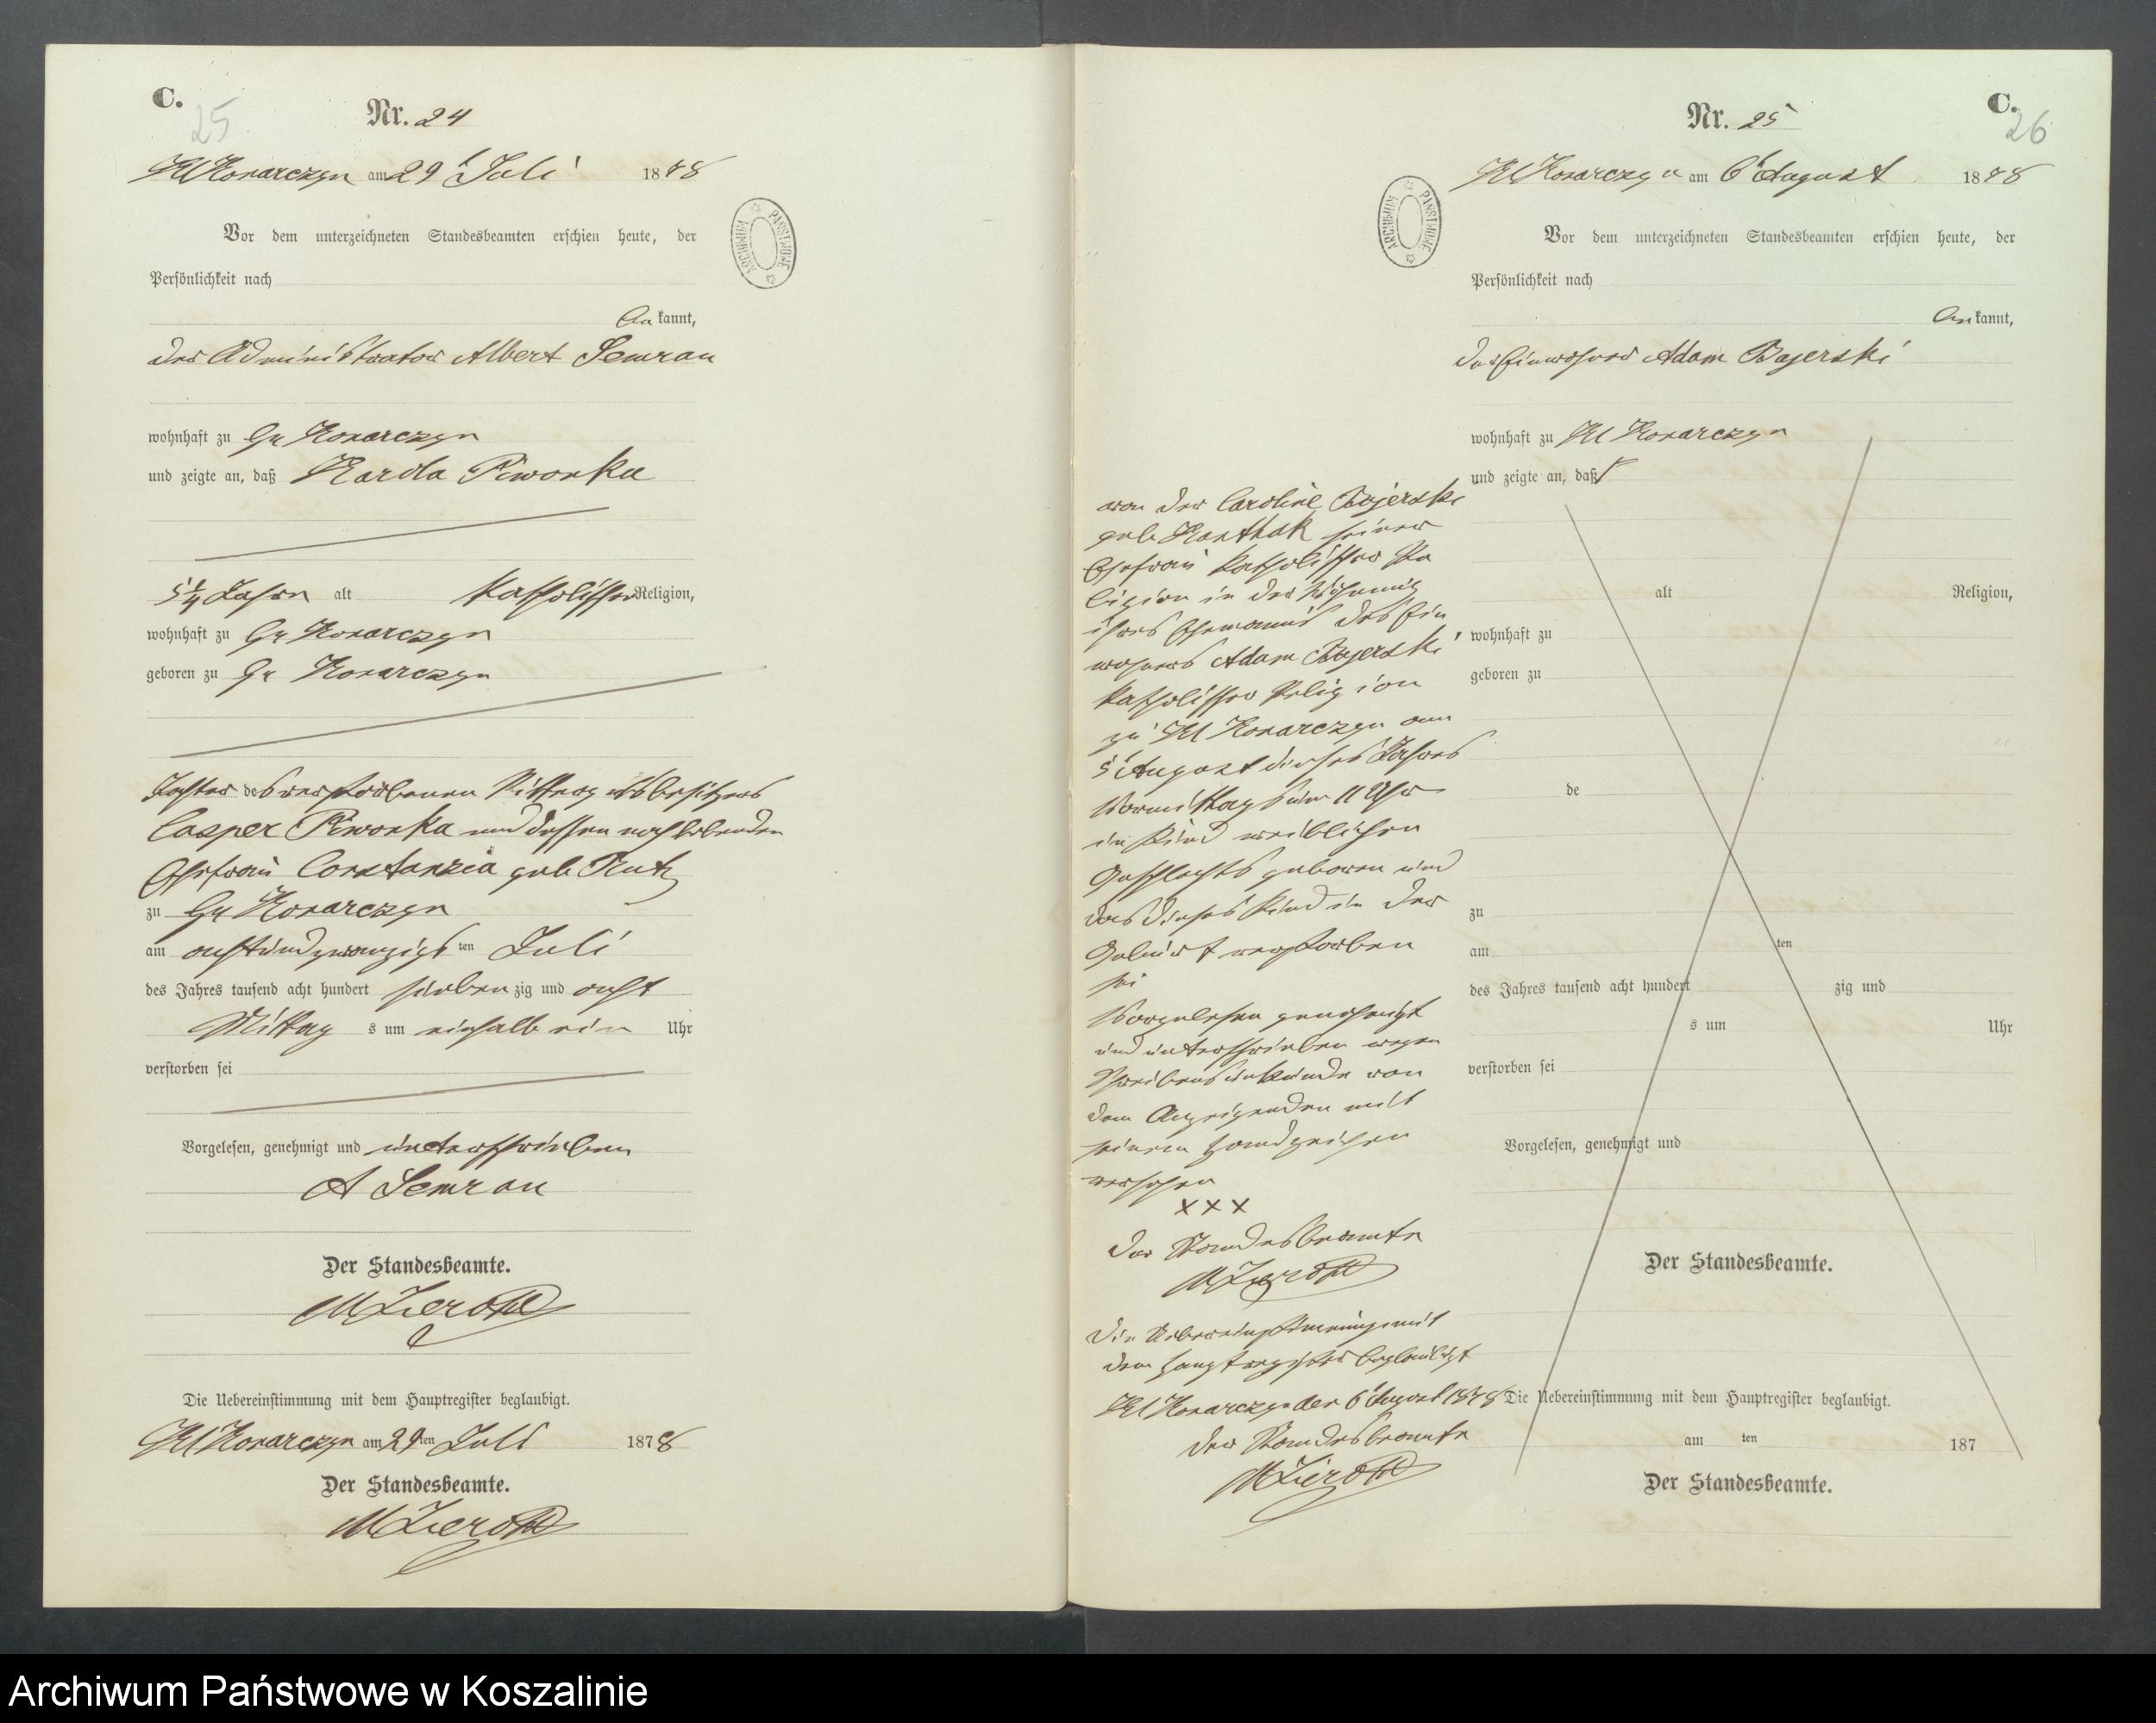 C.
25
Nr. 24
Kl Konarczyn am 29 Juli 1878
ARCHIWUM PAŃSTWOWE
Vor dem unterzeichneten Standesbeamten erschien heute, der
Persönlichkeit nach
be kannt,
der Administrator Albert Semrau
wohnhaft zu Gr Konarczyn
und zeigte an, daß Karola Piwonka
5¼ Jahr alt katholischer Religion,
wohnhaft zu Gr Konarczyn
geboren zu Gr Konarczyn
Tochter des verstorbenen Rittergutsbesitzers
Casper Piwonka und dessen noch lebenden
Ehefrau Constanzia geb
zu Gr Konarczyn
am achtundzwanzigsten Juli
des Jahres tausend acht hundert sieben zig und acht
Mittag s um einhalb ein Uhr
verstorben sei
Vorgelesen, genehmigt und unterschrieben
A Semrau
Der Standesbeamte.
Die Uebereinstimmung mit dem Hauptregister beglaubigt.
Kl Konarczyn am 29 ten Juli 1878
Der Standesbeamte.
C.
26
Nr. 25
Kl Konarczyn am 6 August 1878
ARCHIWUM PAŃSTWOWE
Vor dem unterzeichneten Standesbeamten erschien heute, der
Persönlichkeit nach
be kannt,
der Einwohner Adam Bajerski
wohnhaft zu Kl Konarczyn
und zeigte an, daß
von der Caroline Bajerski
geb seiner
Ehefrau katholischer Re
ligion in der Wohnung
ihres Ehemanns des Ein
wohners Adam Bajerski
katholischer Religion
zu Kl Konarczyn am
5 August dieses Jahres
Vormittags um 11 Uhr
ein Kind weiblichen
Geschlechts geboren und
das dieses Kind in der
Geburt verstorben
sei
Vorgelesen genehmigt
und unterschrieben wegen
Schreibensunkunde von
dem Anzeigenden mit
seinem Handzeichen
versehen
x x x
Der Standesbeamte
Die Uebereinstimmung mit
dem Hauptregister beglaubigt
Kl Konarczyn den 6 August 1878
Der Standesbeamte
alt Religion,
wohnhaft zu
geboren zu
de
zu
am ten
des Jahres tausend acht hundert zig und
s um Uhr
verstorben sei
Vorgelesen, genehmigt und
Der Standesbeamte.
Die Uebereinstimmung mit dem Hauptregister beglaubigt.
am ten 187
Der Standesbeamte.
Archiwum Państwowe w Koszalinie